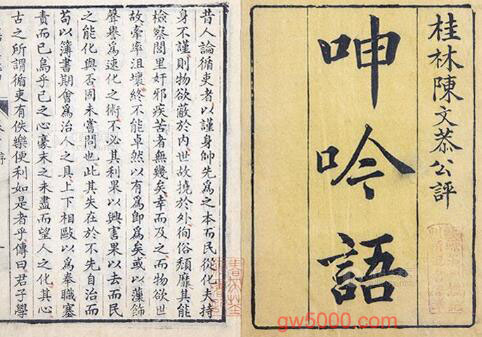 桂林陳文恭公評
呻吟語
昔人論循吏者以謹身帥先為之本而民從化夫持
身不謹則物欲蔽於內世故撓於外徇俗頹靡其能
檢察閭里奸邪疾苦者無幾矣幸而及之而物欲世
故牽率沮壞終不能卓然以有為即為矣或以藻飾
聲譽為速化之術不必其利果以興害果以去而民
之能化與否固未嘗問也此其失在於不先自治而
苟以簿書期會為治人之具上下相毆以為奉職塞
責而已烏乎己之心豪末之未盡而望人之化其心
古之所謂循吏有佚樂便利如是者乎傳曰君子學
gw5000.com